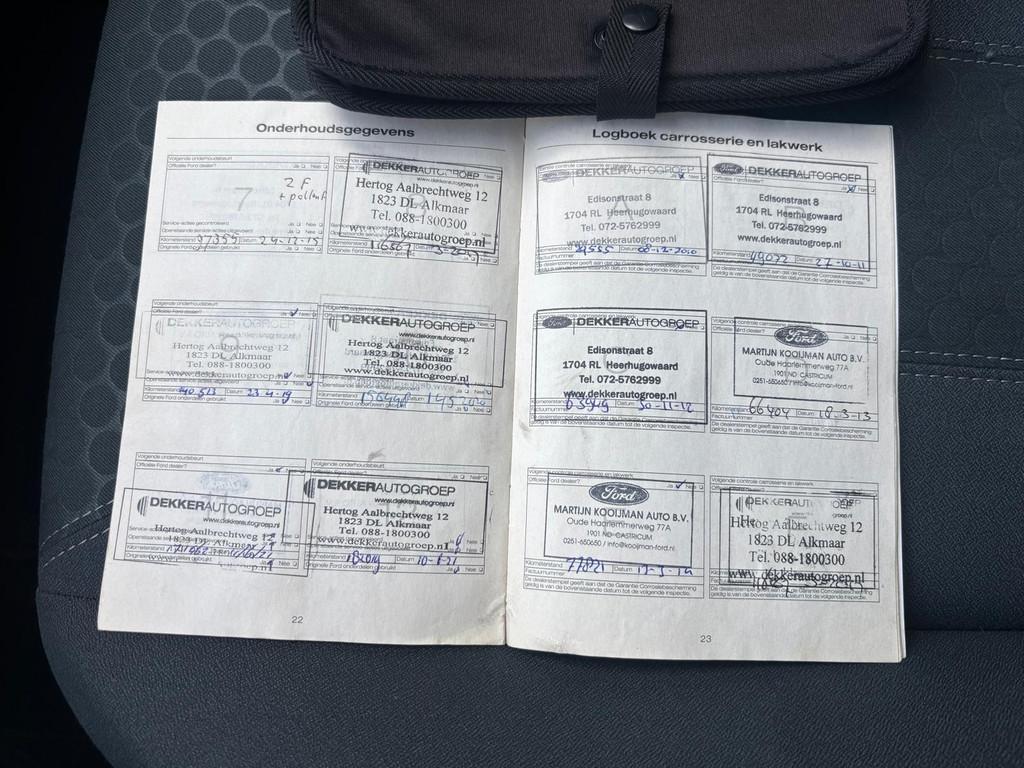 Onderhoudsgegevens
Volgende onderhoudsbeurt
Officiële Ford dealer? Ja Nee
7
2 F
+ pollenf
Service-acties gecontroleerd Ja Nee
Openstaande service-acties uitgevoerd Ja Nee
Kilometerstand 97355 Datum 24-12-15
Originele Ford onderdelen gebruikt Ja Nee
DEKKERAUTOGROEP
www.dekkerautogroep.nl
Hertog Aalbrechtweg 12
1823 DL Alkmaar
Tel. 088-1800300
www.dekkerautogroep.nl
Kilometerstand Datum
Originele Ford onderdelen gebruikt
Volgende onderhoudsbeurt
Officiële Ford dealer? Ja Nee
DEKKERAUTOGROEP
www.dekkerautogroep.nl
Hertog Aalbrechtweg 12
1823 DL Alkmaar
Tel. 088-1800300
www.dekkerautogroep.nl
Kilometerstand Datum 23-4-19
Originele Ford onderdelen gebruikt Ja Nee
DEKKERAUTOGROEP
www.dekkerautogroep.nl
Hertog Aalbrechtweg 12
1823 DL Alkmaar
Tel. 088-1800300
www.dekkerautogroep.nl
Kilometerstand Datum
Originele Ford onderdelen gebruikt Ja Nee
Volgende onderhoudsbeurt
Officiële Ford dealer? Ja Nee
Ford
DEKKERAUTOGROEP
www.dekkerautogroep.nl
Hertog Aalbrechtweg 12
1823 DL Alkmaar
Tel. 088-1800300
Kilometerstand
Originele Ford onderdelen gebruikt
Volgende onderhoudsbeurt
Officiële Ford dealer? Ja Nee
DEKKERAUTOGROEP
www.dekkerautogroep.nl
Hertog Aalbrechtweg 12
1823 DL Alkmaar
Tel. 088-1800300
www.dekkerautogroep.nl
Kilometerstand Datum
Originele Ford onderdelen gebruikt Ja Nee
22
Logboek carrosserie en lakwerk
Volgende controle carrosserie en lakwerk
Officiële Ford dealer? Ja Nee
A
Ford DEKKERAUTOGROEP
Edisonstraat 8
1704 RL Heerhugowaard
Tel. 072-5762999
www.dekkerautogroep.nl
Kilometerstand Datum 08-12-2010
Factuurnummer
De dealerstempel geeft aan dat de Garantie Carrosseriebescherming
geldig is van de bovenstaande datum tot de volgende inspectie.
B
Ford DEKKERAUTOGROEP
Edisonstraat 8
1704 RL Heerhugowaard
Tel. 072-5762999
www.dekkerautogroep.nl
Kilometerstand 49072 Datum 27-10-11
De dealerstempel geeft aan dat de Garantie Carrosseriebescherming
geldig is van de bovenstaande datum tot de volgende inspectie.
Ford DEKKERAUTOGROEP
Edisonstraat 8
1704 RL Heerhugowaard
Tel. 072-5762999
www.dekkerautogroep.nl
Kilometerstand Datum 30-11-12
Factuurnummer
De dealerstempel geeft aan dat de Garantie Carrosseriebescherming
geldig is van de bovenstaande datum tot de volgende inspectie.
Volgende controle carrosserie en lakwerk
Ford
MARTIJN KOOIJMAN AUTO B.V.
Oude Haarlemmerweg 77A
1901 ND CASTRICUM
0251-650650 / info@kooijman-ford.nl
Kilometerstand 66404 Datum 18-3-13
Factuurnummer
De dealerstempel geeft aan dat de Garantie Carrosseriebescherming
geldig is van de bovenstaande datum tot de volgende inspectie.
Volgende controle carrosserie en lakwerk
Officiële Ford dealer? Ja Nee
Ford
MARTIJN KOOIJMAN AUTO B.V.
Oude Haarlemmerweg 77A
1901 ND CASTRICUM
0251-650650 / info@kooijman-ford.nl
Kilometerstand 77821 Datum
Factuurnummer
De dealerstempel geeft aan dat de Garantie Carrosseriebescherming
geldig is van de bovenstaande datum tot de volgende inspectie.
Volgende controle carrosserie en lakwerk
Officiële Ford
Hertog Aalbrechtweg 12
1823 DL Alkmaar
Tel. 088-1800300
www.dekkerautogroep.nl
De dealerstempel geeft aan dat de Garantie Carrosseriebescherming
geldig is van de bovenstaande datum tot de volgende inspectie.
23